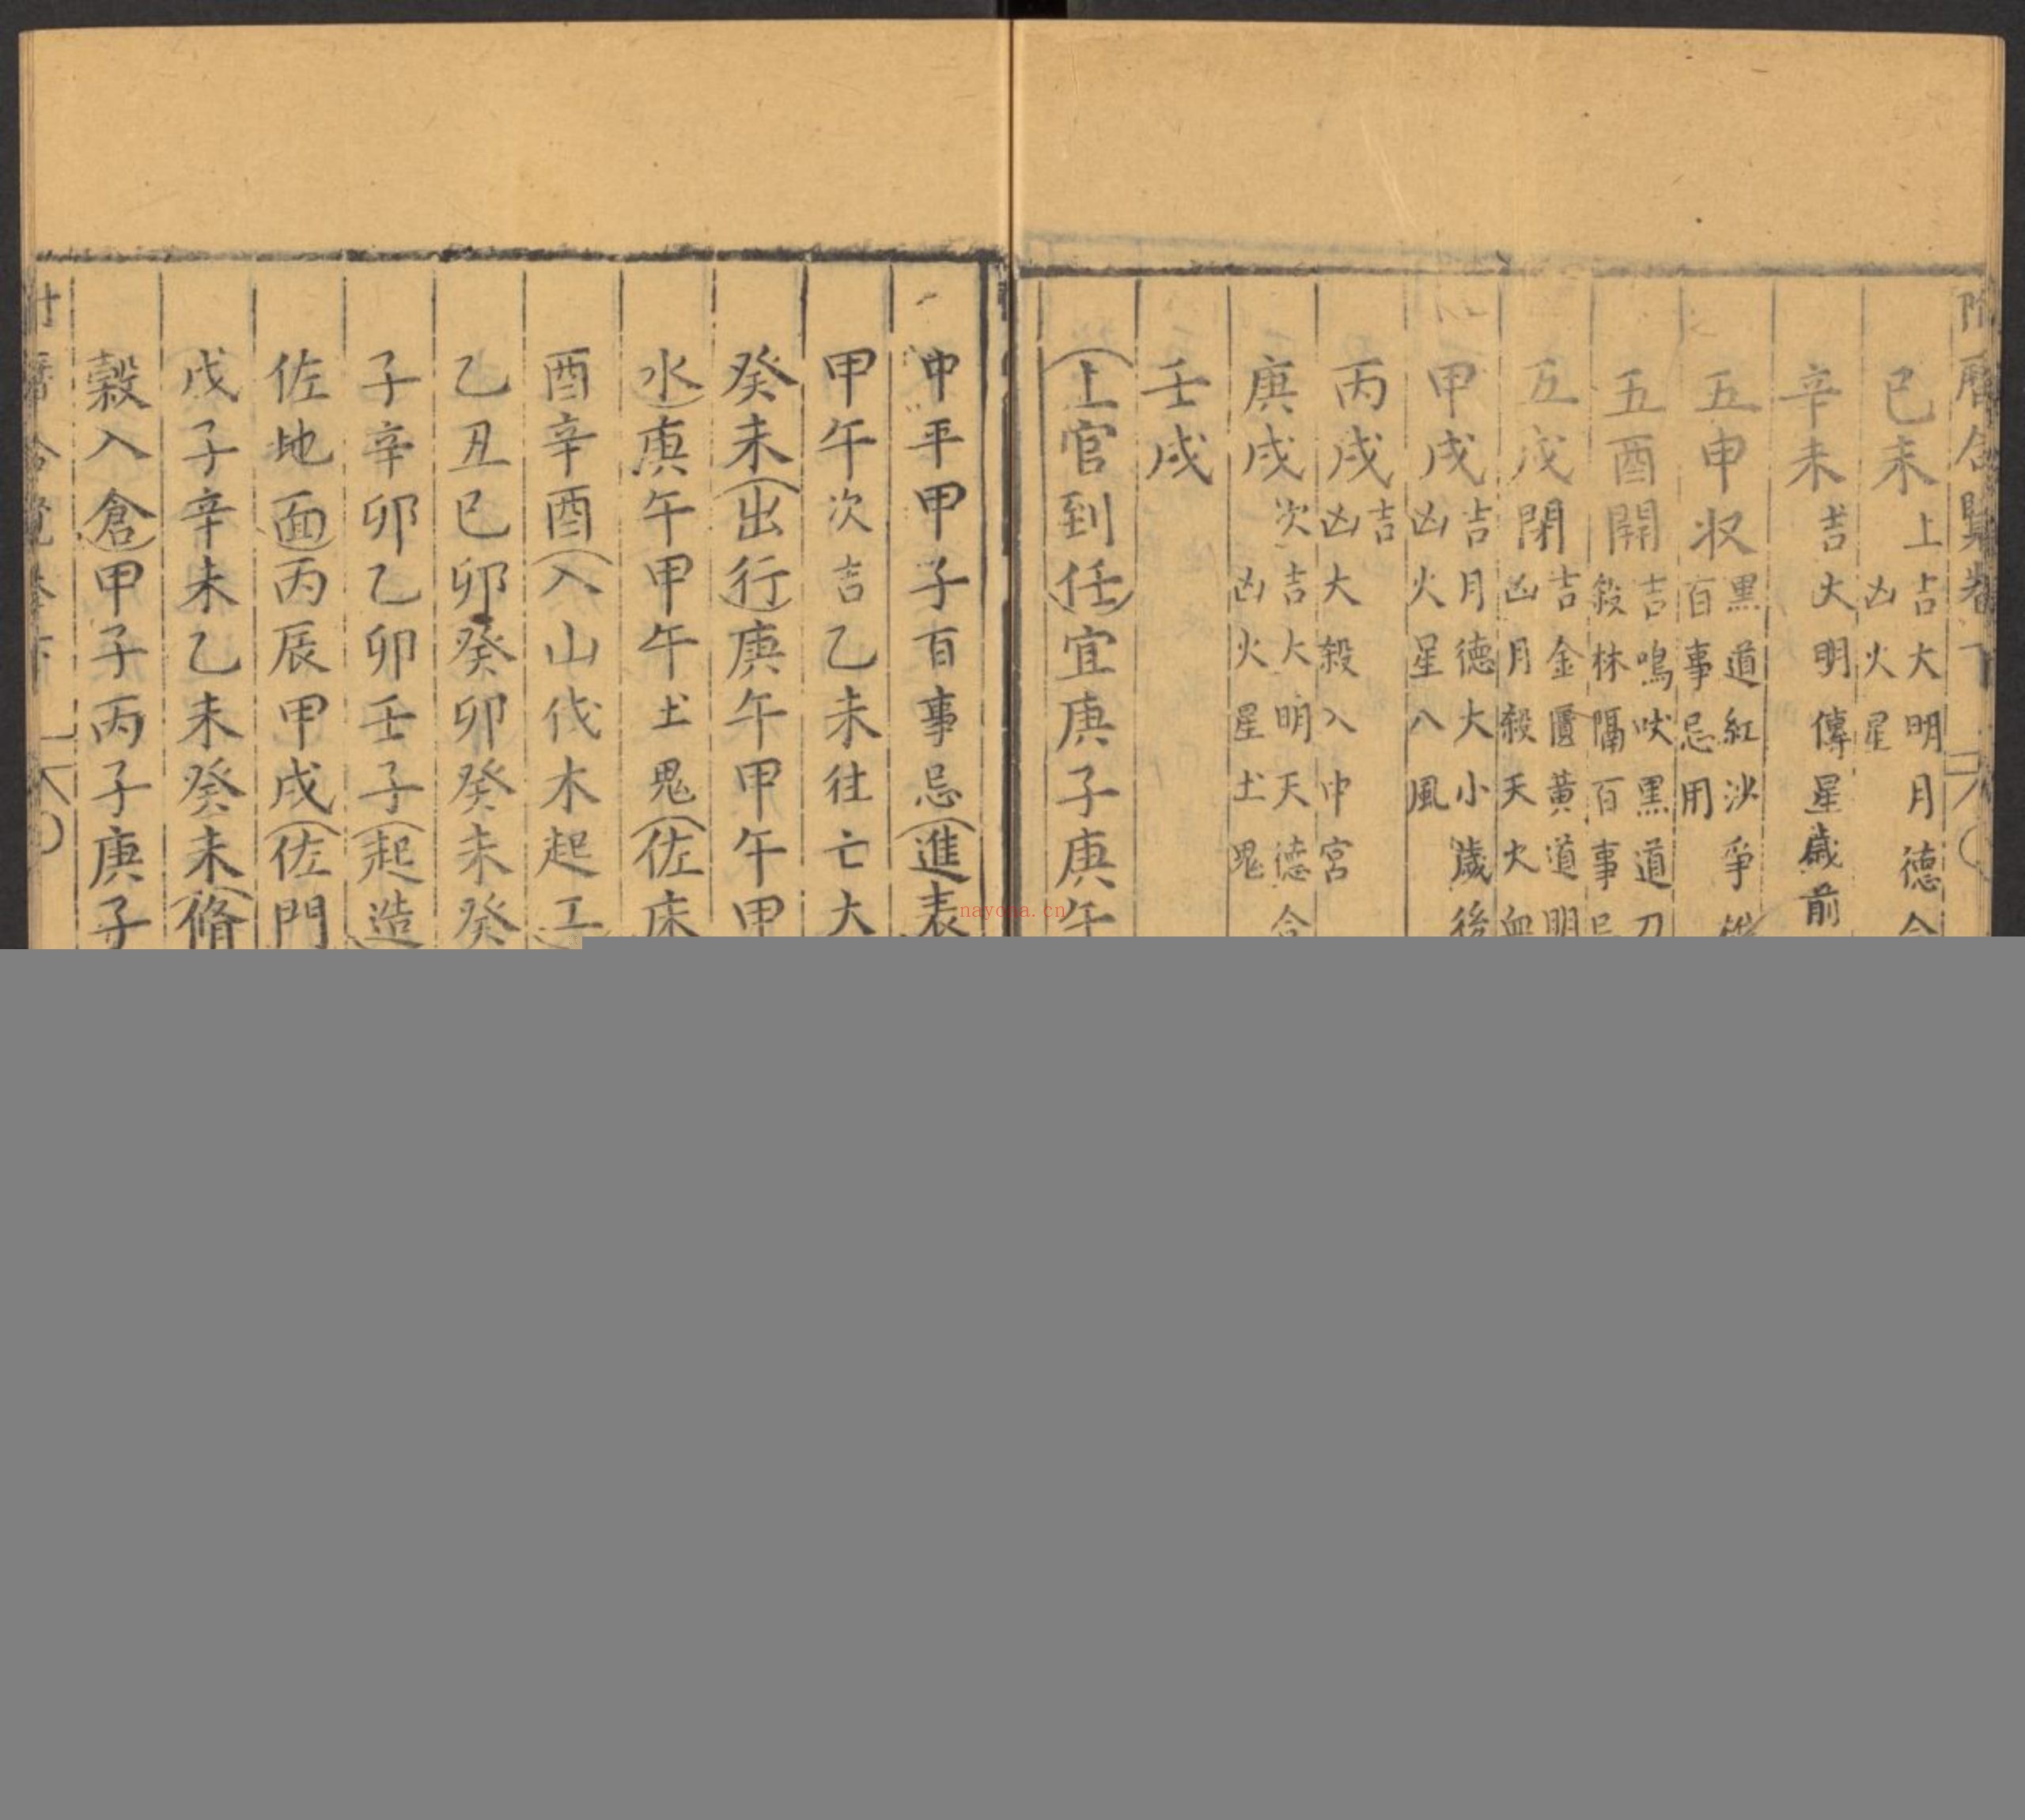 曆合覽卷下
己未 上吉大明月德合
凶火星
辛未 吉大明傳星歲前
五申收 黑道紅沙爭
百事忌用
五酉開 吉鳴吠黑道刀
殺林隔百事忌
五戌閉 吉金匱黃道明
凶月殺天火血
甲戌 吉月德大小歲後
凶火星八風
丙戌 吉
凶大殺入中宮
庚戌 次吉大明天德合
凶火星土鬼
壬戌
上官到任宜庚子庚午
中平甲子百事忌進表
甲午次吉乙未往亡大
癸未出行庚午甲午甲
水庚午甲午土鬼佐床
酉辛酉入山伐木起工
乙丑己卯癸卯癸未癸
子辛卯乙卯壬子起造
佐地面丙辰甲戌佐門
戊子辛未乙未癸未脩
穀入倉甲子丙子庚子
nayona.cn